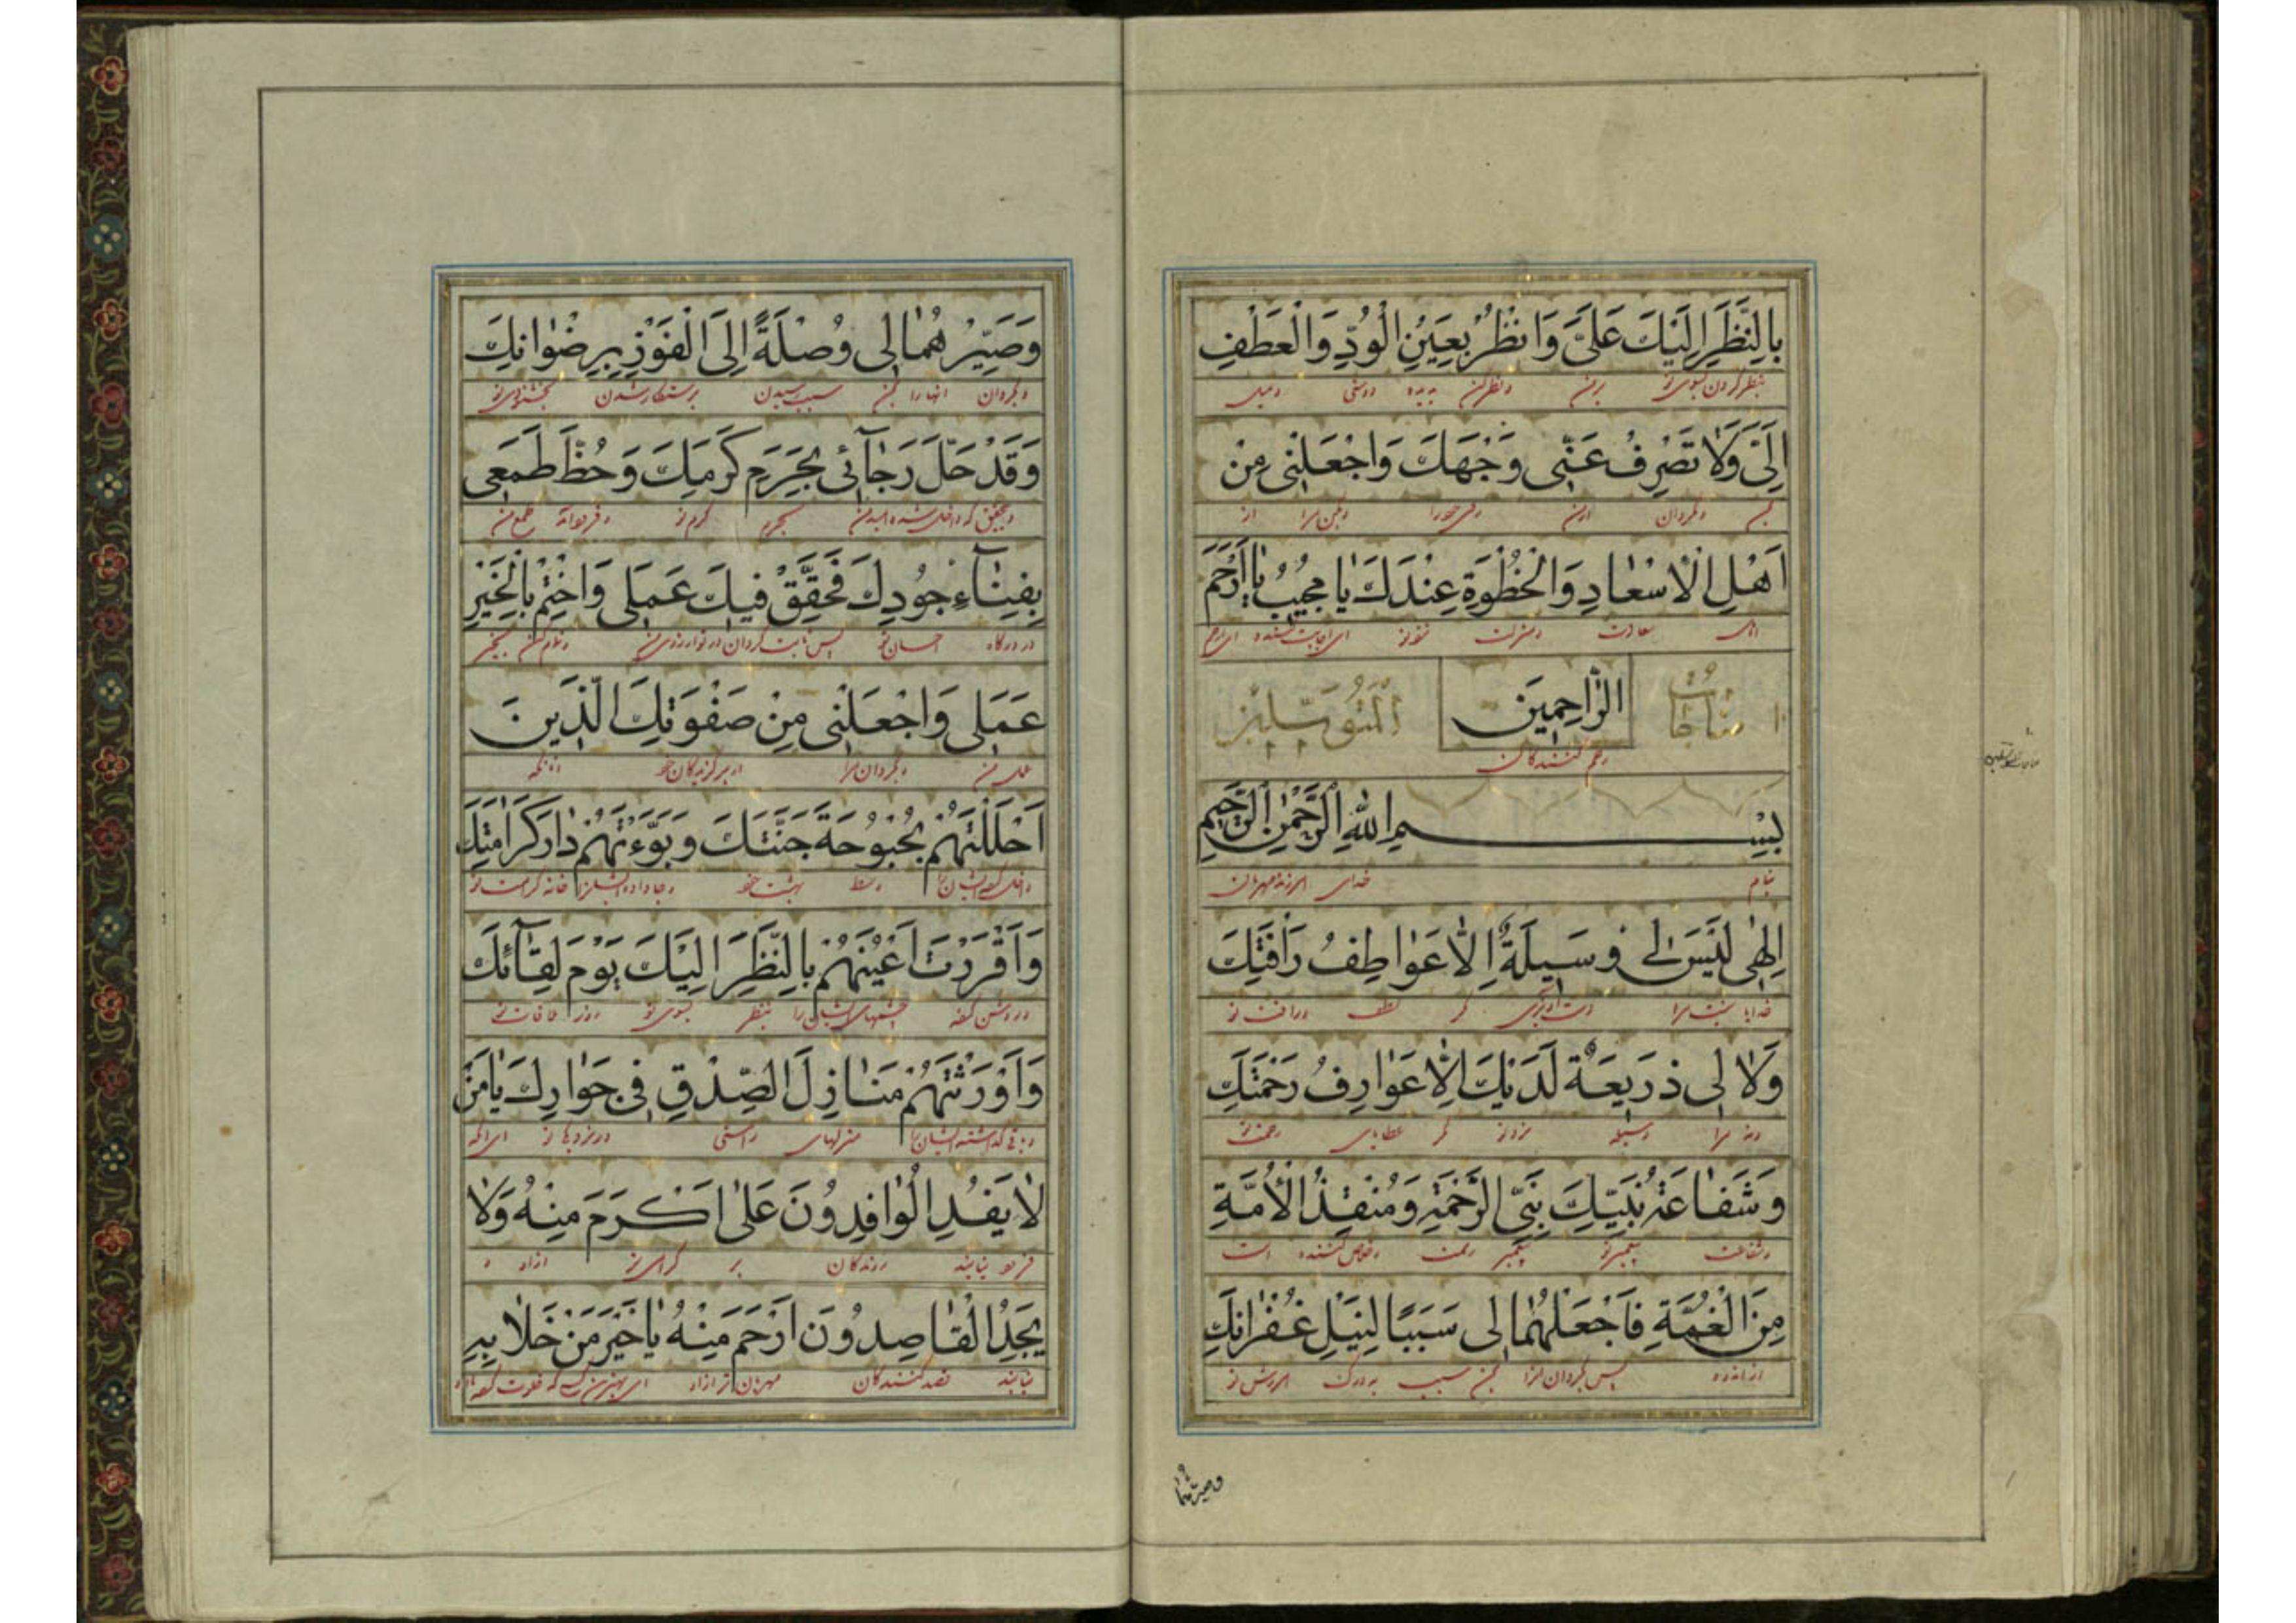 بِالنَّظَرِ اِلَيْكَ عَلَىَّ وَانْظُرْ بِعَيْنِ الْوُدِّ وَالْعَطْفِ
بنظر کردن بسوی تو بر من و نظر کن بدیده دوستی و میل
اِلَىَّ وَلَا تَصْرِفْ عَنّى وَجْهَكَ وَاجْعَلْنى مِنْ
بمن و مگردان از من روی خود را و بکن مرا از
اَهْلِ الْاِسْعٰادِ وَالْحُظْوَةِ عِنْدَكَ يٰا مُجيبُ يٰا اَرْحَمَ
اهل سعادت و منزلت نزد تو ای اجابت کننده ای ارحم
مُنٰاجٰاتُ الرّٰاحِمينَ الْمُتَوَسِّلينَ
رحم کنندگان
بِسْمِ اللّٰهِ الرَّحْمٰنِ الرَّحيمِ
بنام خدای مهربان
اِلٰهى لَيْسَ لى وَسيلَةٌ اِلّٰا عَوٰاطِفُ رَافَتِكَ
خدایا نیست مرا دست آویزی مگر لطف و رافت تو
وَلٰا لى ذَريعَةٌ لَدَيْكَ اِلّٰا عَوٰارِفُ رَحْمَتِكَ
و نه مرا وسیله نزد تو مگر عطاهای رحمت تو
وَشَفٰاعَةُ نَبِيِّكَ نَبِىِّ الرَّحْمَةِ وَمُنْقِذُ الْاُمَّةِ
و شفاعت پیغمبر تو پیغمبر رحمت و خلاص کننده امت
مِنَ الْغُمَّةِ فَاجْعَلْهُمٰا لى سَبَبًا لِنَيْلِ غُفْرٰانِكَ
از اندوه پس بگردان سبب بدرک امرزش تو
وصیرهما
وَصَيِّرْهُمٰا لى وُصْلَةً اِلَى الْفَوْزِ بِرِضْوٰانِكَ
و بگردان انها را بمن سبب رسیدن برستکار شدن بخشنودی تو
وَقَدْ حَلَّ رَجٰآئى بِحَرَمِ كَرَمِكَ وَحُطَّ طَمَعى
و بتحقیق که داخل شده امید من بحرم کرم تو و فرود آمد طمع من
بِفِنٰآءِ جُودِكَ فَحَقِّقْ فيكَ عَمَلى وَاخْتِمْ بِالْخَيْرِ
در درگاه احسان تو پس ثابت گردان در تو و تمام کن بخیر
عَمَلى وَاجْعَلْنى مِنْ صَفْوَتِكَ الَّذينَ
عمل من و بگردان مرا از برگزیدگان خود آنانکه
اَحْلَلْتَهُمْ بُحْبُوحَةَ جَنَّتِكَ وَبَوَّءْتَهُمْ دٰارَ كَرٰامَتِكَ
وسط بهشت خود خانه کرامت تو
وَاَقْرَرْتَ اَعْيُنَهُمْ بِالنَّظَرِ اِلَيْكَ يَوْمَ لِقٰآئِكَ
و روشن کرده چشمهای ایشان را بنظر بسوی تو روز ملاقات تو
وَاَوْرَثْتَهُمْ مَنٰازِلَ الصِّدْقِ فى جِوٰارِكَ يٰا مَنْ
منزلهای راستی ای آنکه
لٰا يَفِدُ الْوٰافِدُونَ عَلٰى اَكْرَمَ مِنْهُ وَلٰا
فرود نیایند بر از او و
يَجِدُ الْقٰاصِدُونَ اَرْحَمَ مِنْهُ يٰا خَيْرَ مَنْ خَلٰا بِهِ
نیابند قصد کنندگان مهربان تر از او ای بهترین کسی که خلوت کرده